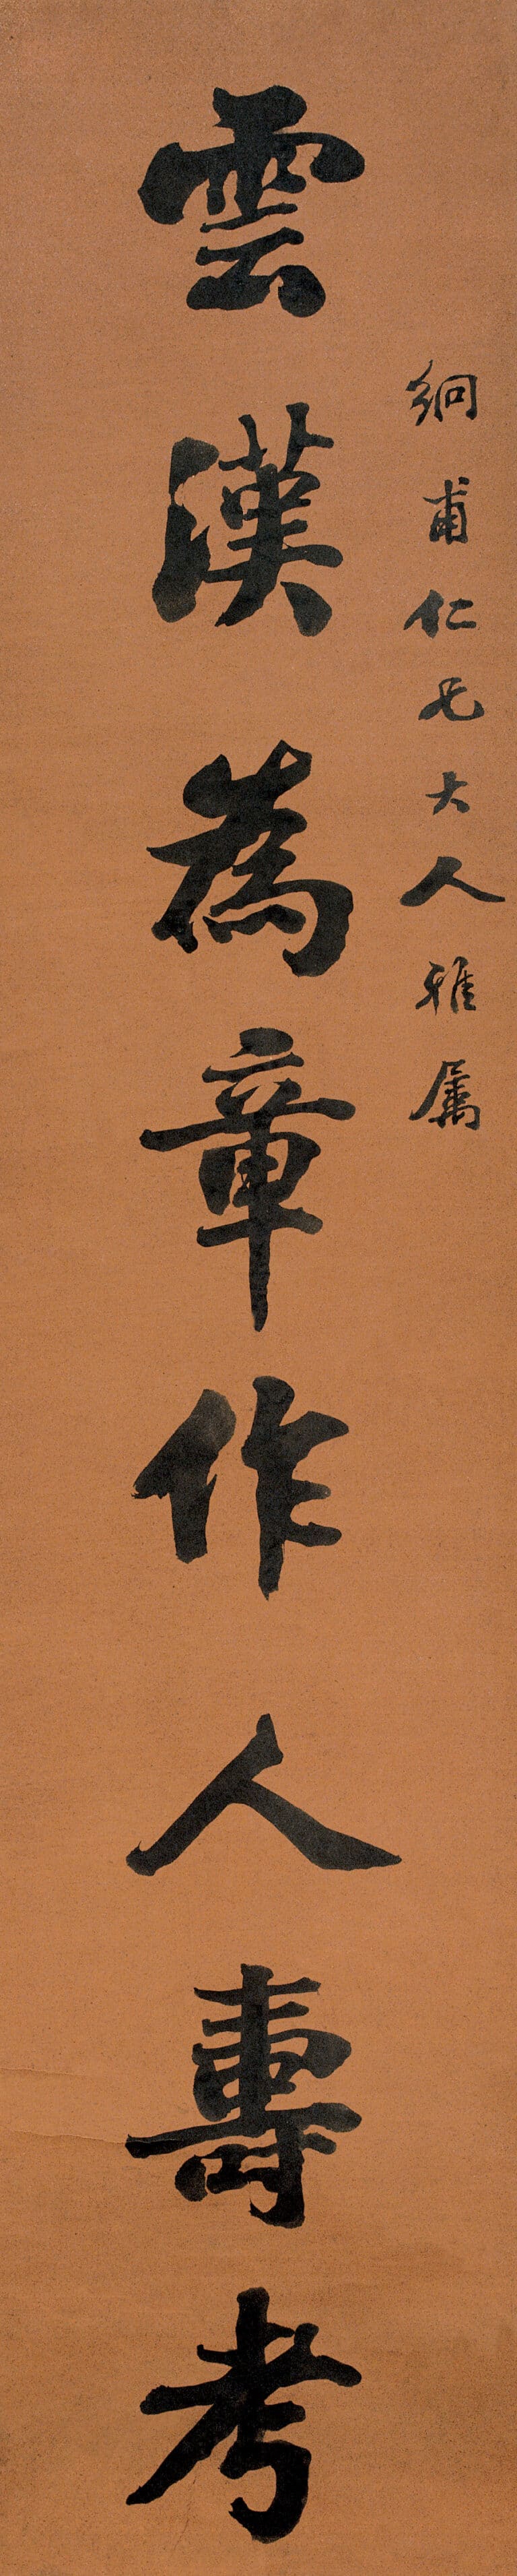 絅甫仁兄大人雅屬
雲漢為章作人壽考